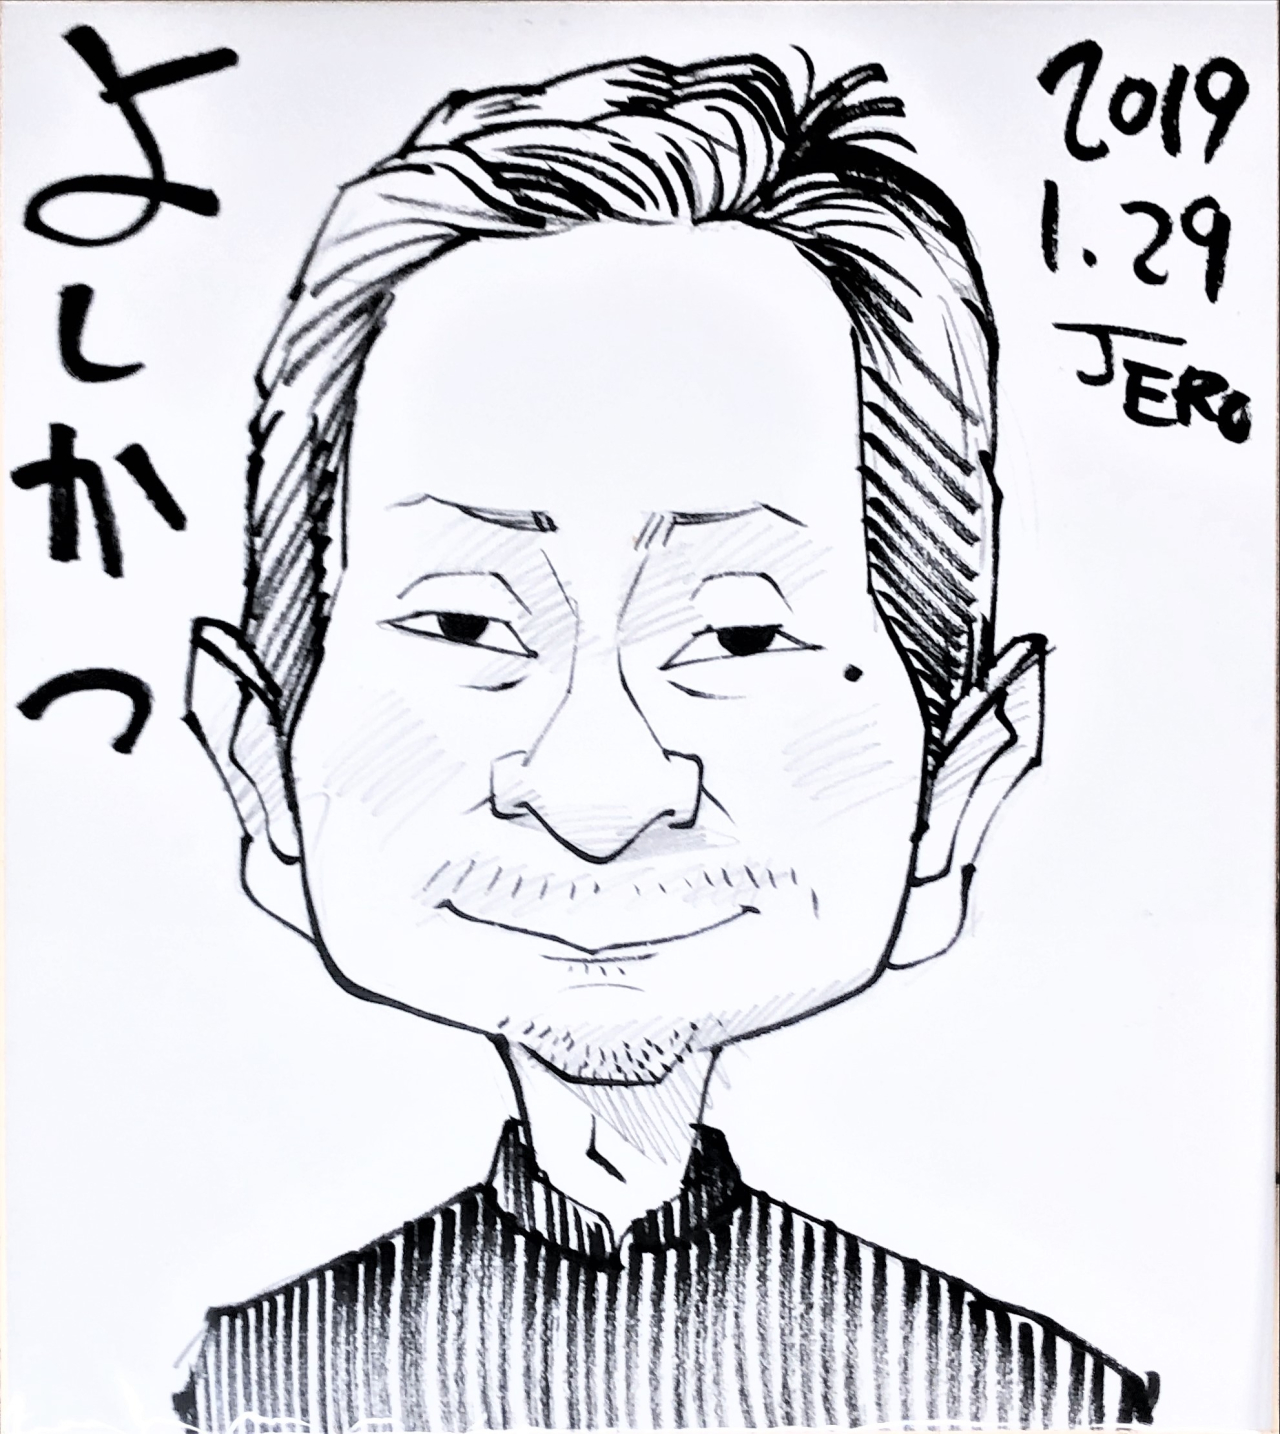 よしかつ
2019
1.29
JERO